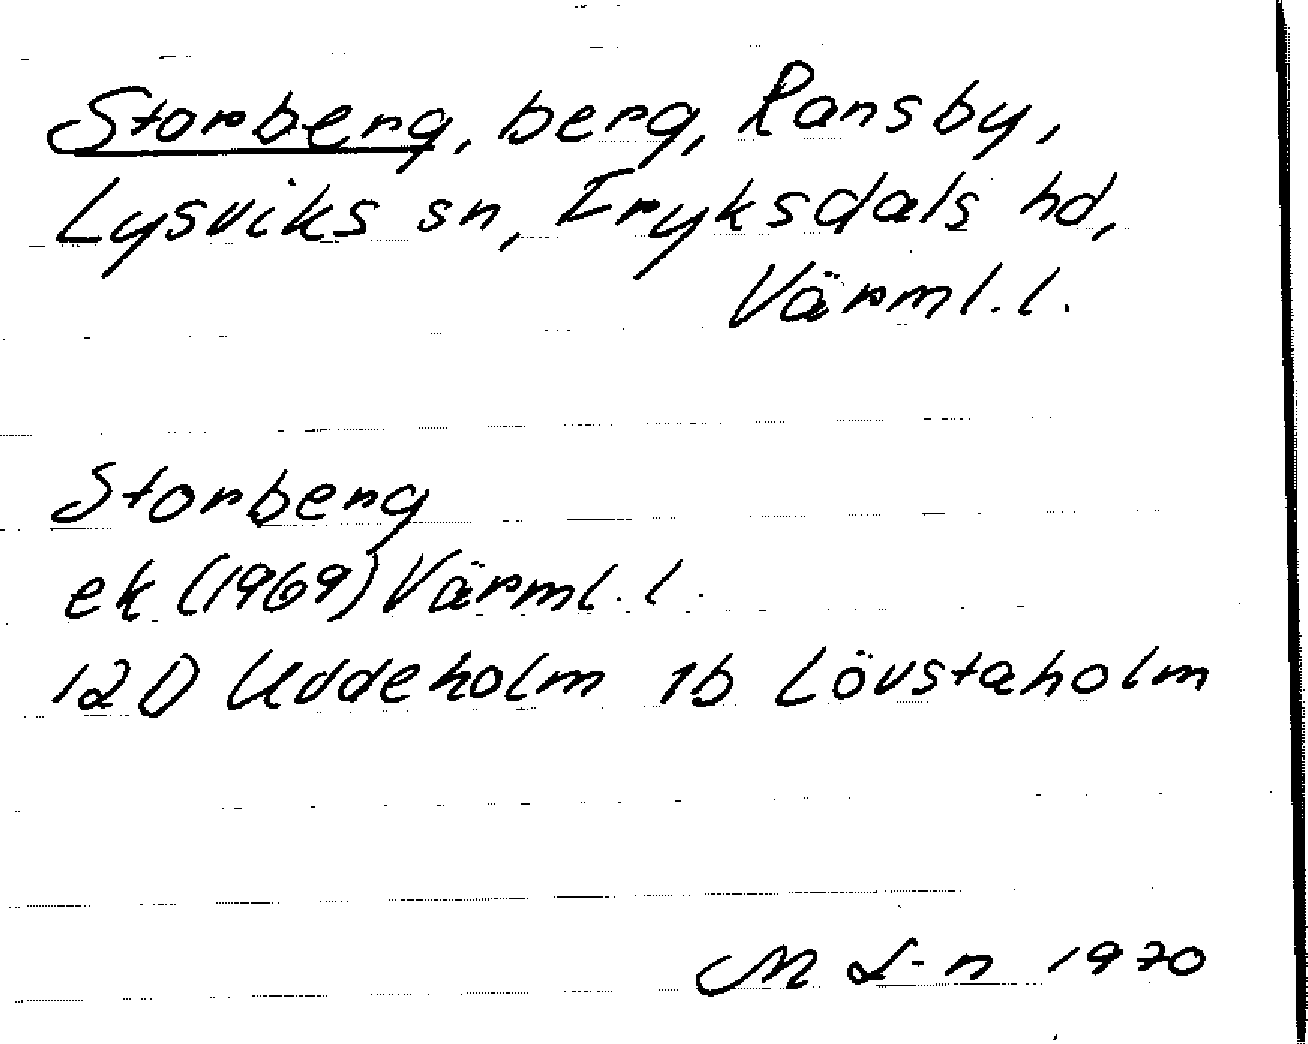 Storberg, berg, Ransby,
Lysviks sn, Fryksdals hd,
Värml. l.
Storberg
ek (1969) Värml. l.
12D Uddeholm 1b Lövstaholm
M L-n 1970